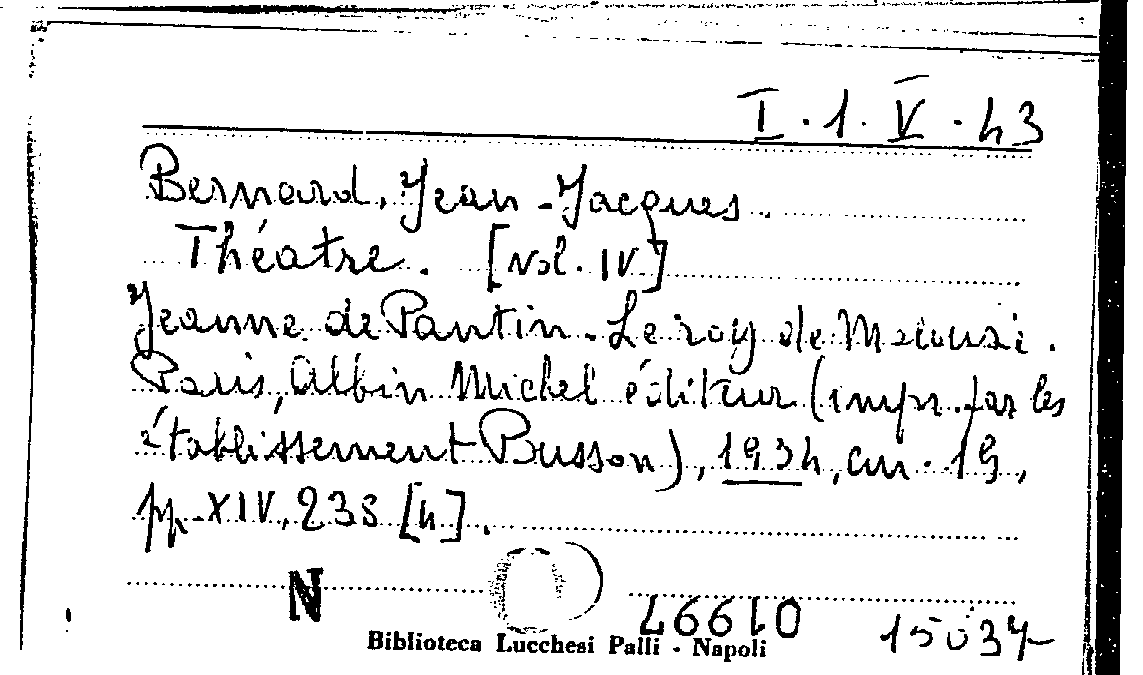 I.1.V.43
Bernard, Jean-Jacques.
Théatre. [Vol. IV]
Jeanne de Pantin. Le roy de Malousie.
Paris, Albin Michel éditeur (impr. par les
établissement Busson), 1934, cm. 19,
pp. XIV, 238 [4].
N
46610
15037
Biblioteca Lucchesi Palli - Napoli